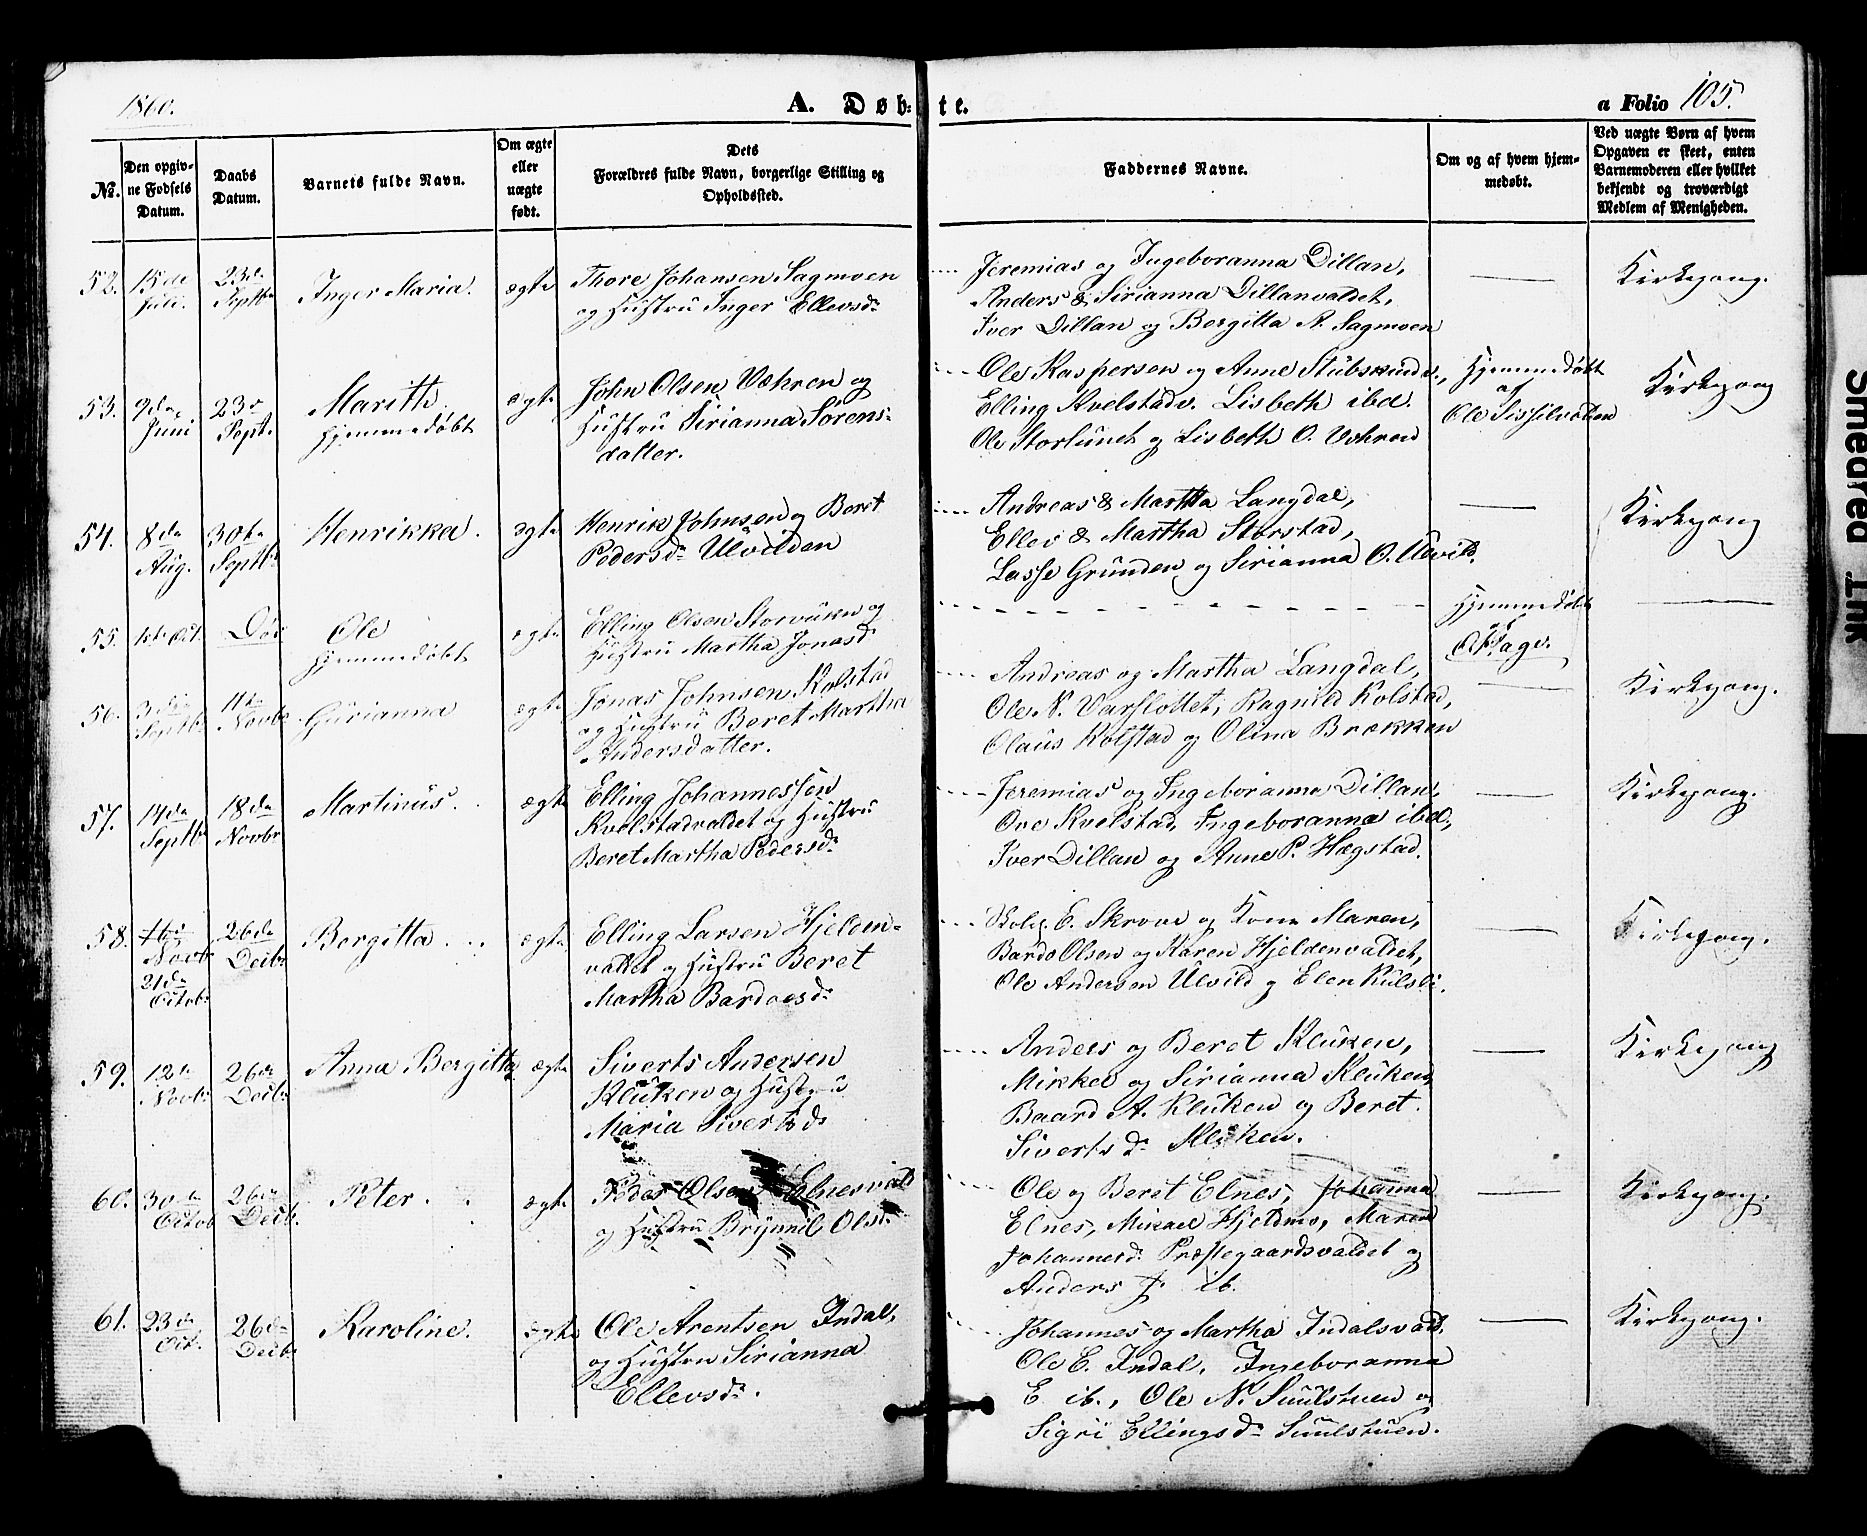 1860.
A. Døb: te.
a Folio 105.
№.
Den opgiv-
ne Fødsels
Datum.
Daabs
Datum.
Barnets fulde Navn.
Om ægte
eller
uægte
født.
Dets
Forældres fulde Navn, borgerlige Stilling og
Opholdssted.
Faddernes Navne.
Om og af hvem hjem-
medøbt.
Ved uægte Børn af hvem
Opgaven er skeet, enten
Barnemoderen eller hvilket
bekjendt og troværdigt
Medlem af Menigheden.
52. 15de Juli. 23de Septbr Inger Maria. ægte
Thore Johansen Sagmoen
og Hustru Inger Ellevsdr
Jeremias og Ingeboranna Dillan,
Anders & Sirianna Dillanvaldet,
Iver Dillan og Bergitta A. Sagmoen
Kirkegang.
53. 9de Juni 23de Sept. Marith ægte
hjemmedøbt
John Olsen Væhren og
Hustru Sirianna Sørens-
datter.
Ole Kaspersen og Anne
Elling Kvelstadv. Lisbeth ibd.
Ole Storlunet og Lisbeth O. Vehren
Hjemmedøbt
af
Ole
Kirkegang
54. 8de Aug. 30te Septbr Henrikka. ægte
Henrik Johnsen og Beret
Pedersdr Ulvilden
Andreas & Martha Langdal,
Ellev & Martha Storstad,
Lasse Grunden og Sirianna O. Ulvild.
Kirkegang
55. 1ste Oct. Død Ole ægte
hjemmedøbt
Elling Olsen og
Hustru Martha Jonasdr
Hjemmedøbt
af
56. 3die Septbr 11te Novbr Gurianna ægte
Jonas Johnsen Kolstad
og Hustru Beret Martha
Andersdatter.
Andreas og Martha Langdal,
Ole N. Varslottet, Ragnild Kolstad,
Olaus Kolstad og Olina Brækken
Kirkegang.
57. 14de Septbr 18de Novbr Martinus. ægte
Elling Johannessen
Kvelstadvaldet og Hustru
Beret Martha Pedersdr
Jeremias og Ingeboranna Dillan,
Ove Kvelstad, Ingeboranna ibd.,
Iver Dillan og Anne P. Hægstad.
Kirkegang.
58. 16de Novbr 26de Decbr Bergitta ægte
21de
Octobr
Elling Larsen Hjelden-
valdet og Hustru Beret
Martha Bardoesdr
E. Skrove og Kone Maren,
Bardo Olsen og Karen Hjeldenvaldet,
Ole Andersen Ulvild og Elen Kulsli.
Kirkegang.
59. 12te Novbr 26de Decbr Anna Bergitta ægte
Siverts Andersen
Kluken og Hustru
Maria Sivertsdr
Anders og Beret Kluken,
Mikkel og Sirianna Kluken,
Baard A. Kluken og Beret
Sivertsdr Kluken.
Kirkegang
60. 30te Octob 26de Decbr Peter. ægte
Peder Olsen Elnesvald
og Hustru Brynnil Olsdr
Ole og Beret Elnes, Johanna
Elnes, Mikael Hjeldmo, Maren
Johannesdr Præstegaardsvaldet og
Anders J. ib.
Kirkegang.
61. 23de Oct. 26de Decbr Karoline. ægte
Ole Arentsen Indal,
og Hustru Sirianna
Ellevsdr.
Johannes og Martha Indalsvald.
Ole E. Indal, Ingeboranna
E ib., Ole N. Suulstuen og
Sigri Ellingsdr Suulstuen.
Kirkegang.
Smedred Tnk